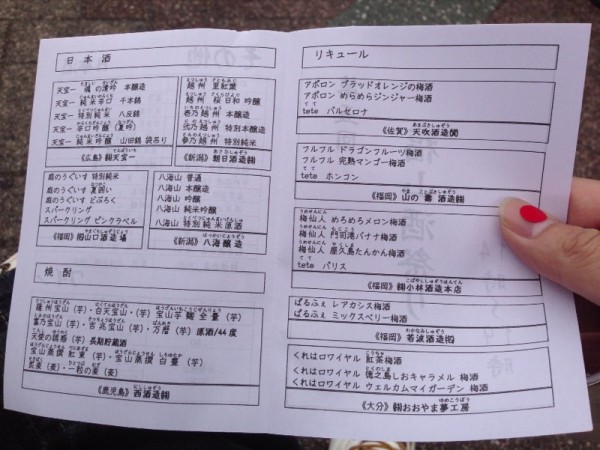 日本酒
天宝一 魂の清吟 本醸造
天宝一 純米辛口 千本錦
天宝一 特別純米 八反錦
天宝一 辛口吟醸（夏吟）
天宝一 純米吟醸 山田錦 袋吊り
《広島》㈱天宝一
越州 里紅葉
越州 桜日和 吟醸
壱乃越州 本醸造
弐乃越州 特別本醸造
参乃越州 特別純米
《新潟》朝日酒造㈱
庭のうぐいす 特別純米
庭のうぐいす 夏囲い
庭のうぐいす どぶろく
スパークリング
スパークリング ピンクラベル
《福岡》㈲山口酒造場
八海山 普通
八海山 本醸造
八海山 吟醸
八海山 純米吟醸
八海山 特別純米原酒
《新潟》八海醸造㈱
焼酎
薩州宝山（芋）・白天宝山・（芋）宝山芋麹全量（芋）
富乃宝山（芋）・吉兆宝山（芋）・万暦（芋）原酒/44度
天使の誘惑（芋）長期貯蔵酒
宝山蒸撰 紅東（芋）宝山蒸撰 白豊（芋）
《鹿児島》西酒造㈱
リキュール
アポロン ブラッドオレンジの梅酒
アポロン めらめらジンジャー梅酒
tete バルセロナ
《佐賀》天吹酒造㈾
フルフル ドラゴンフルーツ梅酒
フルフル 完熟マンゴー梅酒
tete ホンコン
《福岡》山の壽 酒造㈱
梅仙人 めろめろメロン梅酒
梅仙人 門司港バナナ梅酒
梅仙人 屋久島たんかん梅酒
tete パリス
《福岡》㈱小林酒造本店
ぱるふぇ レアカシス梅酒
ぱるふぇ ミックスベリー梅酒
《福岡》若波酒造㈾
くれはロワイヤル 紅茶梅酒
くれはロワイヤル 徳之島しおキャラメル 梅酒
くれはロワイヤル ウェルカムマイガーデン 梅酒
《大分》㈱おおやま夢工房